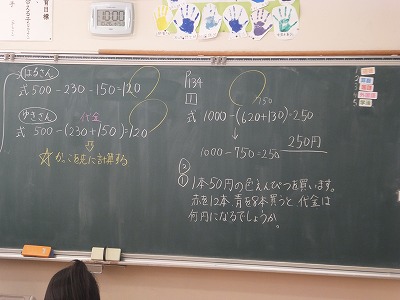 はるさん
式 500-230-150=120
ゆきさん
代金
式 500-(230+150)=120
☆ かっこを先に計算する
P134
1
750
式 1000-(620+130)=250
1000-750=250
250円
②
① 1本50円の色えんぴつを買います。
赤を12本、青を8本買うと、代金は
何円になるでしょうか。